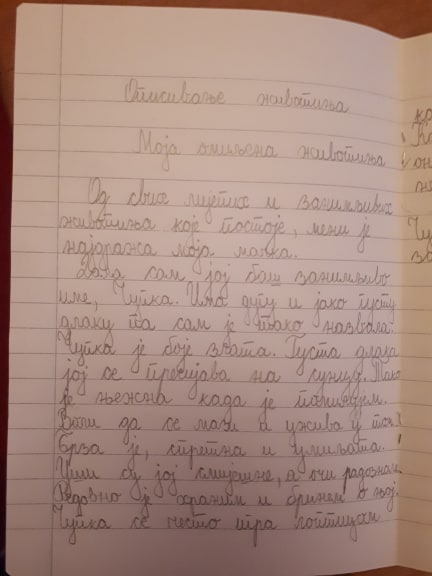 Описивање животиња
Моја омиљена животиња
Од свих лијепих и занимљивих
животиња које постоје, мени је
најдража моја мачка.
Дала сам јој баш занимљиво
име, Чупка. Има дугу и јако густу
длаку па сам је тако назвала.
Чупка је боје злата. Густа длака
јој се пресијава на сунцу. Тако
је њежна када је помазујем.
Воли да се мази и ужива у том.
Брза је, спретна и умиљата.
Уши су јој смијешне, а очи радознале.
Редовно је храним и бринем о њој.
Чупка се често игра лоптицом